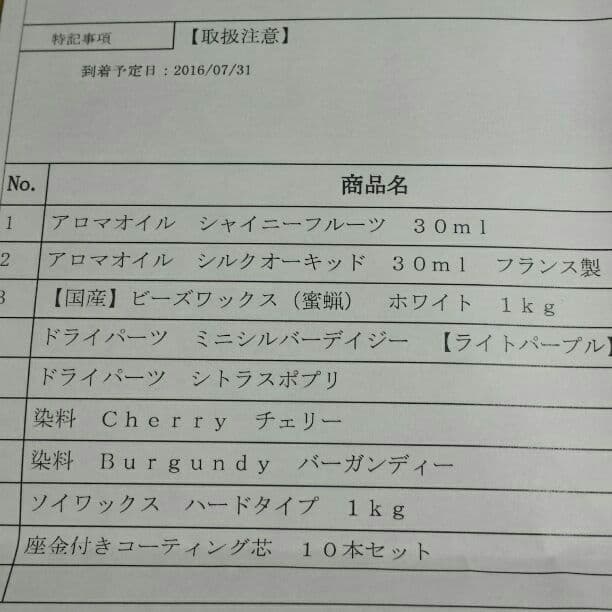 特記事項 【取扱注意】
到着予定日：2016/07/31
No. 商品名
1 アロマオイル　シャイニーフルーツ　３０ｍｌ
2 アロマオイル　シルクオーキッド　３０ｍｌ　フランス製
3 【国産】ビーズワックス（蜜蝋）　ホワイト　１ｋｇ
ドライパーツ　ミニシルバーデイジー　【ライトパープル】
ドライパーツ　シトラスポプリ
染料　Ｃｈｅｒｒｙ　チェリー
染料　Ｂｕｒｇｕｎｄｙ　バーガンディー
ソイワックス　ハードタイプ　１ｋｇ
座金付きコーティング芯　１０本セット